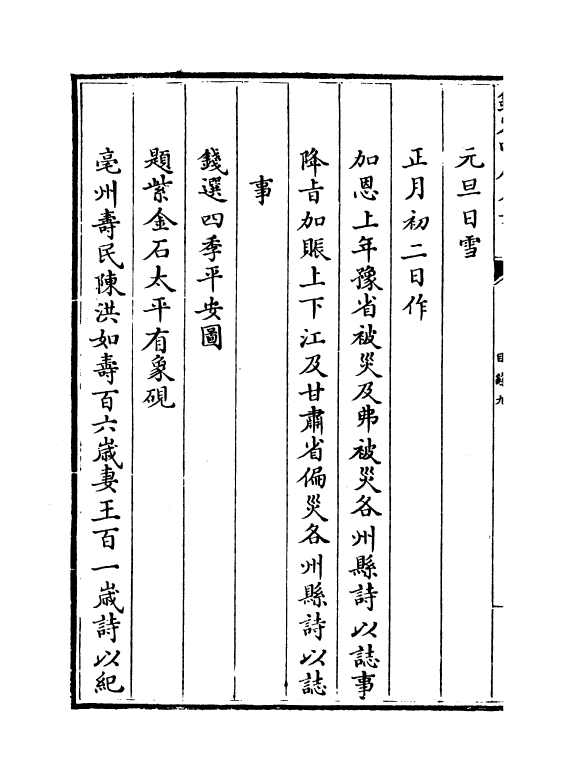 元旦日雪
正月初二日作
加恩上年豫省被災及弗被災各州縣詩以誌事
降旨加賬上下江及甘肅省偏災各州縣詩以誌
事
錢選四季平安圖
題紫金石太平有象硯
亳州壽民陳洪如壽百六歲妻王百一歲詩以紀
目錄九